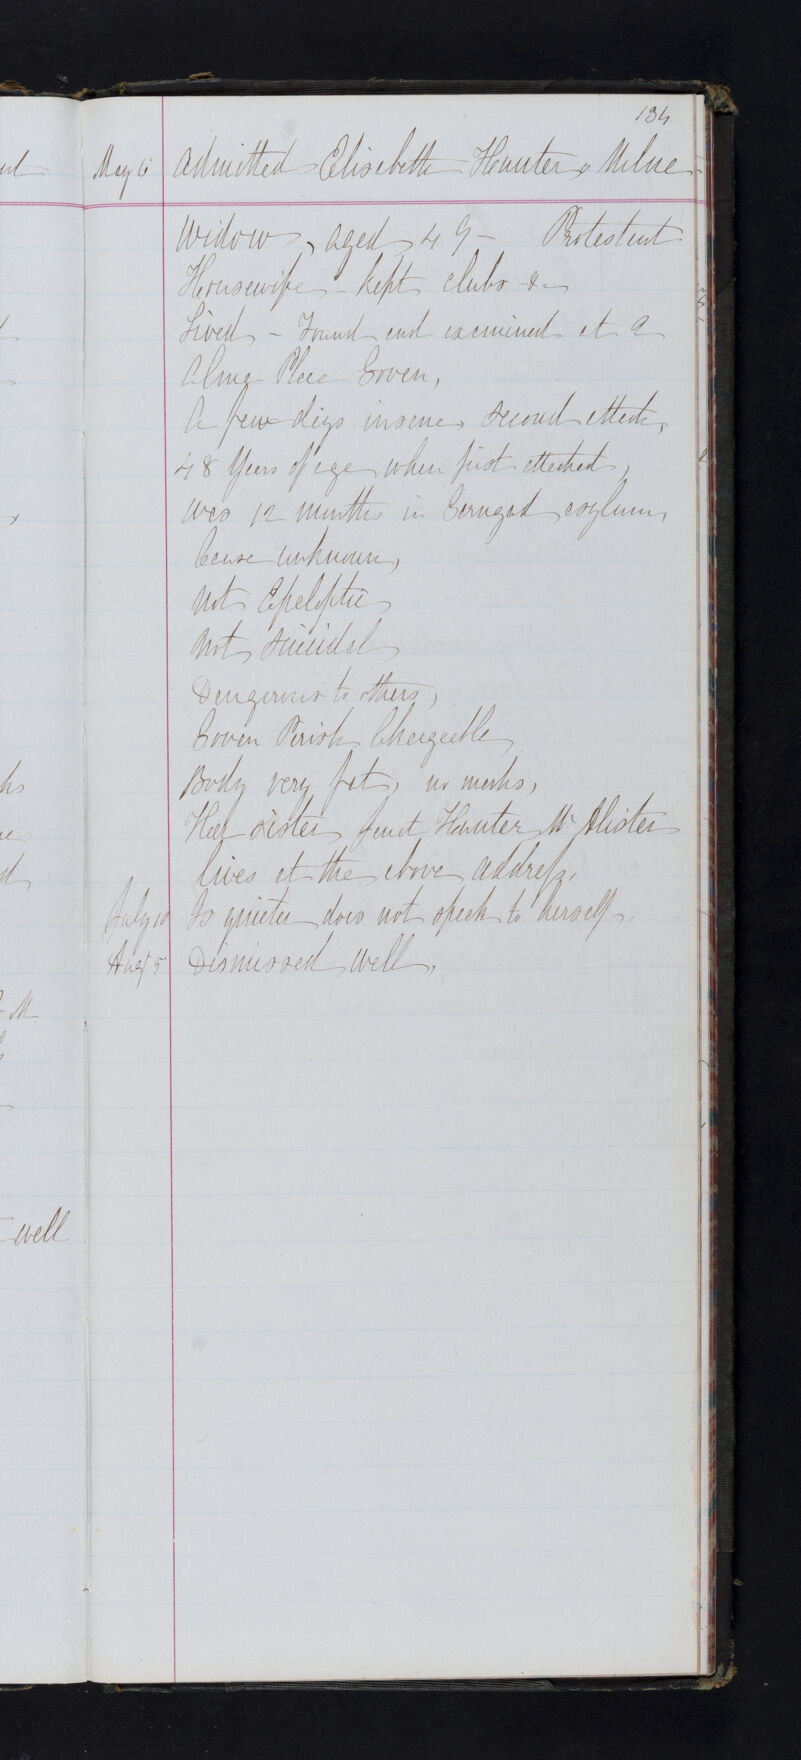 134
May 6 Admitted Elisabeth Hunter or Milne
Widow, aged 49 - Protestant
Housewife - kept clubs &c
Lived - Found and examined at 9
Alma Place Govan,
A few days insane, second attack,
48 Years of age when first attacked,
was 12 months in Gerngad asylum,
Cause unknown,
Not Epeleptic
Not Suicidal
Dangerous to others,
Govan Parish Chargeable,
Body very fat, no marks,
Her sister Janet Hunter McAlister
lives at the above address,
July 10 Is quieter does not speak to herself.
Augt 5 Dismissed well,
well